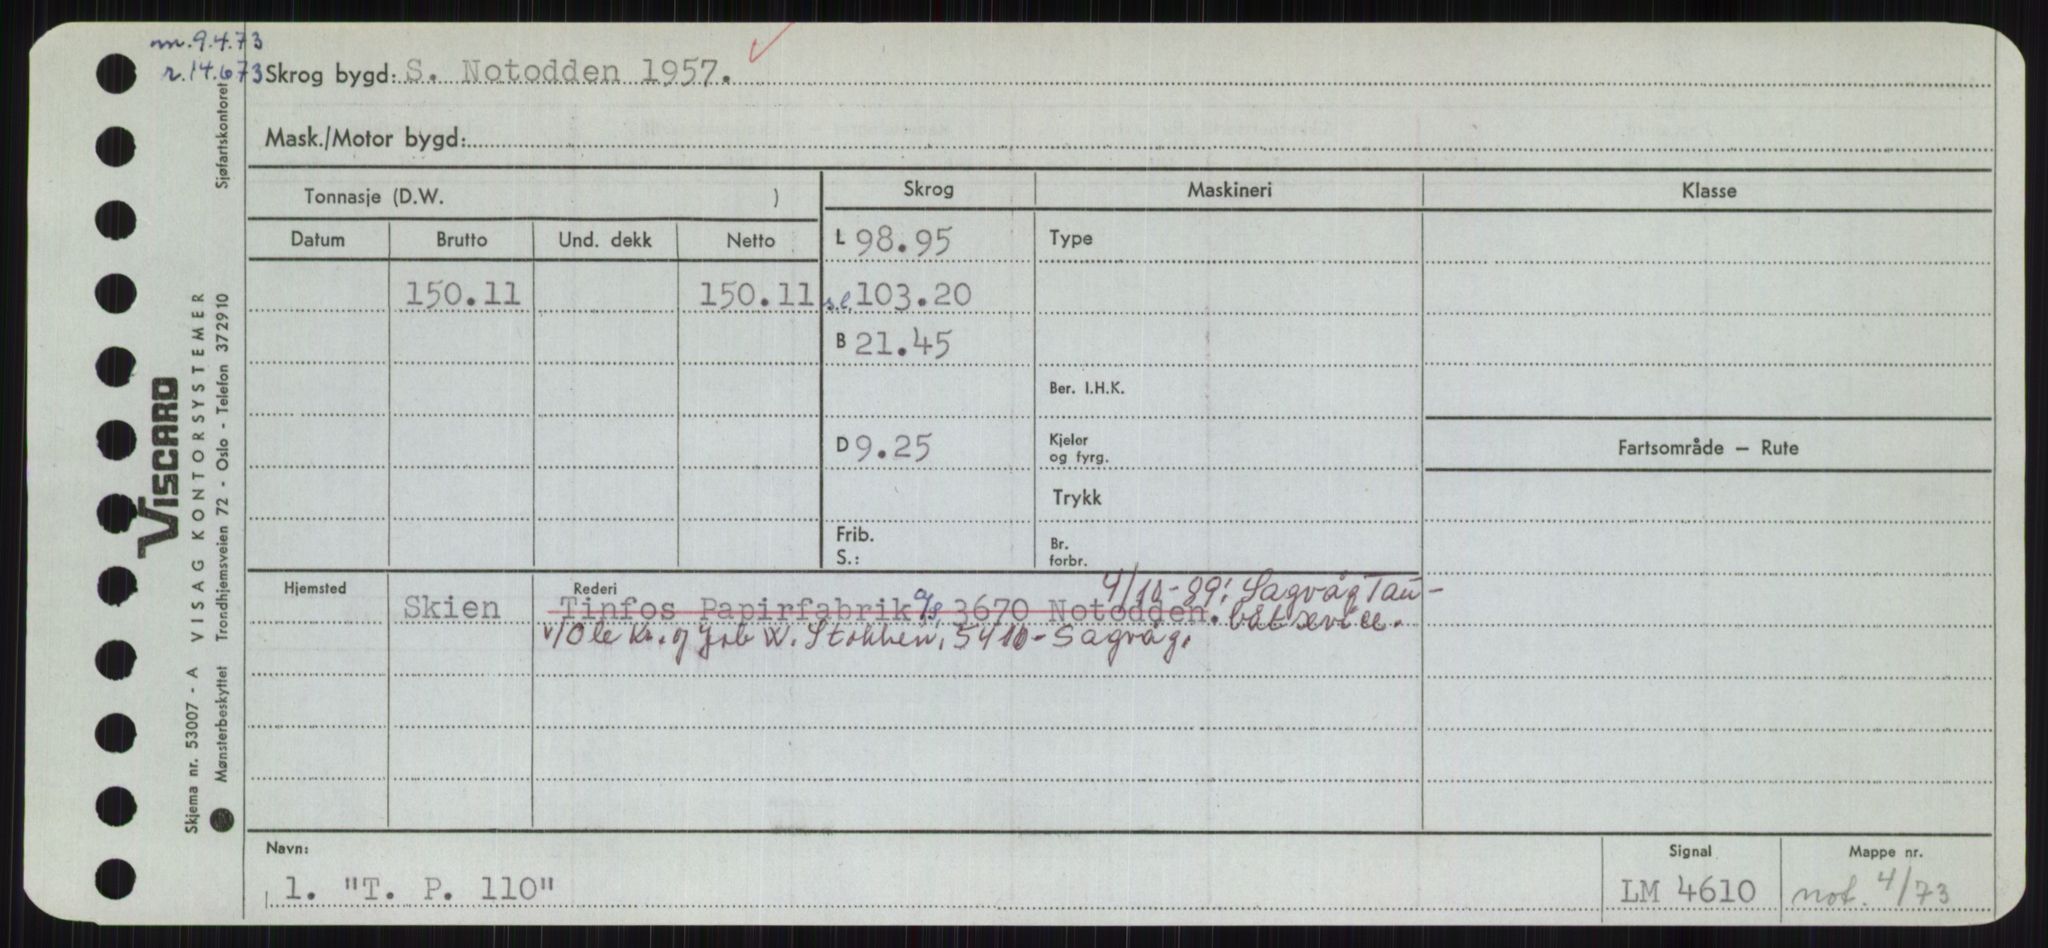 m. 9.4.73
r. 14.6 73 Skrog bygd: S. Notodden 1957.
Mask./Motor bygd:
Tonnasje (D.W. ) Skrog Maskineri Klasse
Datum Brutto Und. dekk Netto L 98.95 Type
150.11 150.11 s.l. 103.20
B 21.45
Ber. I.H.K.
D 9.25 Kjeler og fyrg. Fartsområde — Rute
Trykk
Frib.
S.: Br. forbr.
Hjemsted Rederi 4/10-89: Sagvåg Tau-
Skien Tinfos Papirfabrik a/s, 3670 Notodden. båtservice.
v/Ole Kr. og W. Stokken, 5410 - Sagvåg.
Navn: Signal Mappe nr.
1. "T. P. 110" LM 4610 not. 4/73
VISCARD
Skjema nr. 53007 - A VISAG KONTORSYSTEMER
Mønsterbeskyttet Trondhjemsveien 72 - Oslo - Telefon 372910 Sjøfartskontoret